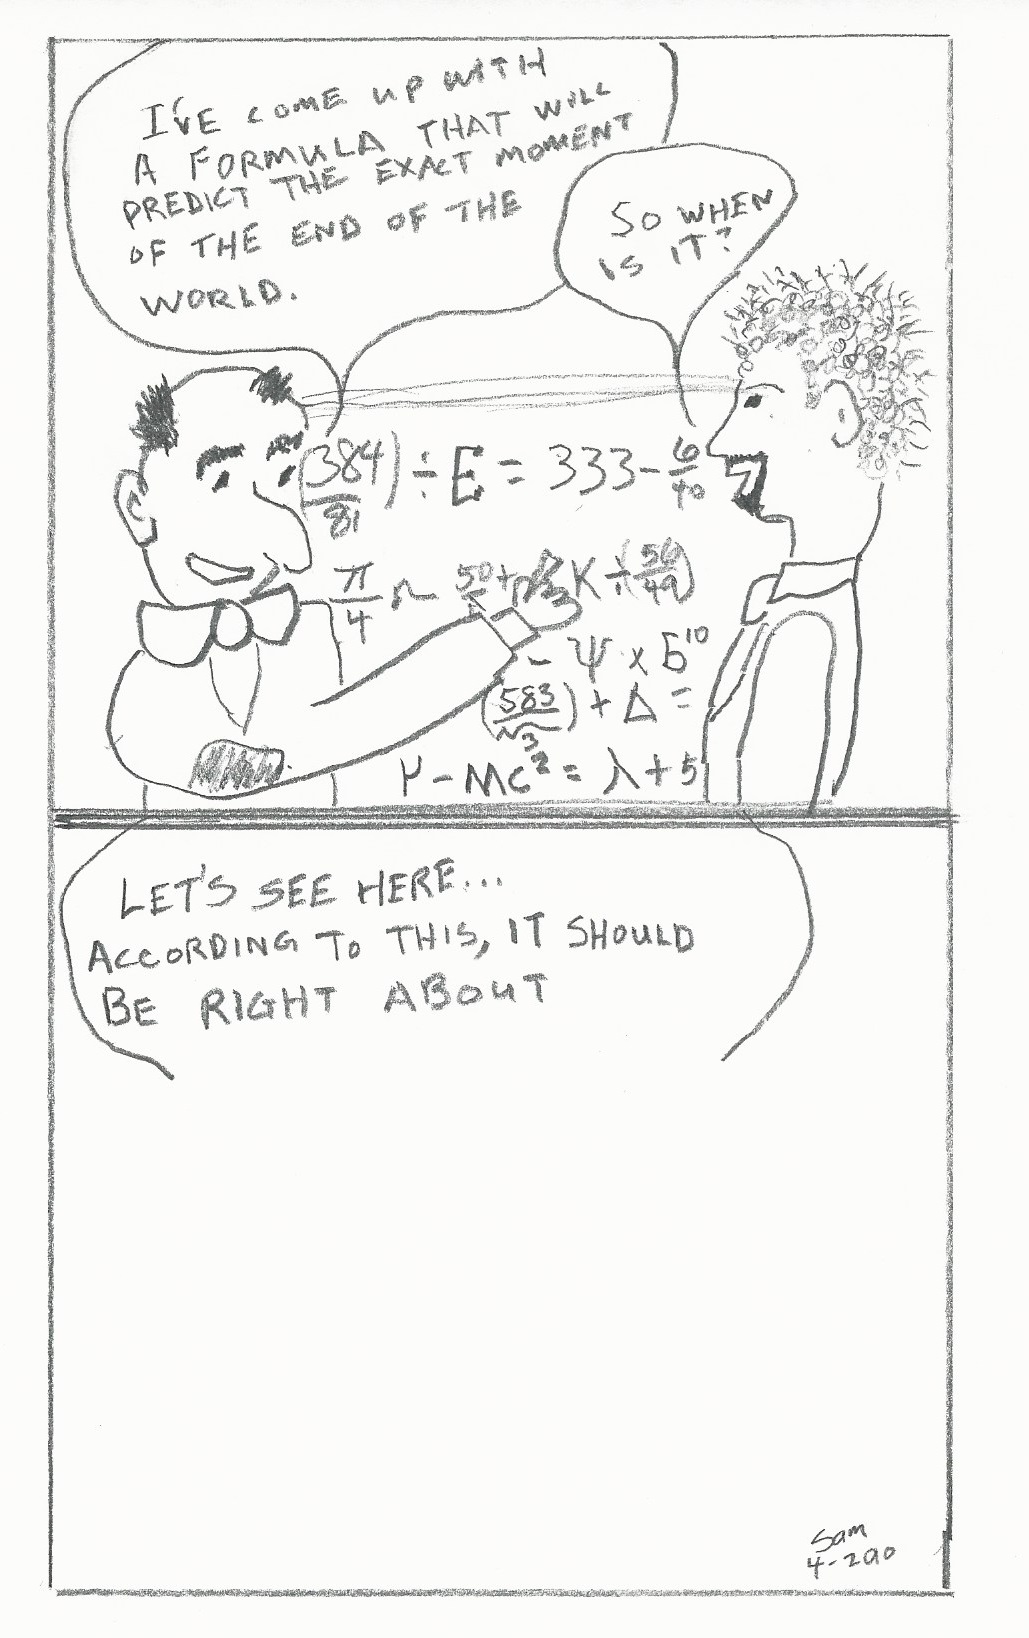 I'VE COME UP WITH
A FORMULA THAT WILL
PREDICT THE EXACT MOMENT
OF THE END OF THE
WORLD.
SO WHEN
IS IT?
(384/81) ÷ E = 333 - 6/40
π/4 ~ 50 + K + (56/49)
- Ψ × Б¹⁰
(583/√3) + Δ =
μ - MC² = λ + 5
LET'S SEE HERE...
ACCORDING TO THIS, IT SHOULD
BE RIGHT ABOUT
Sam